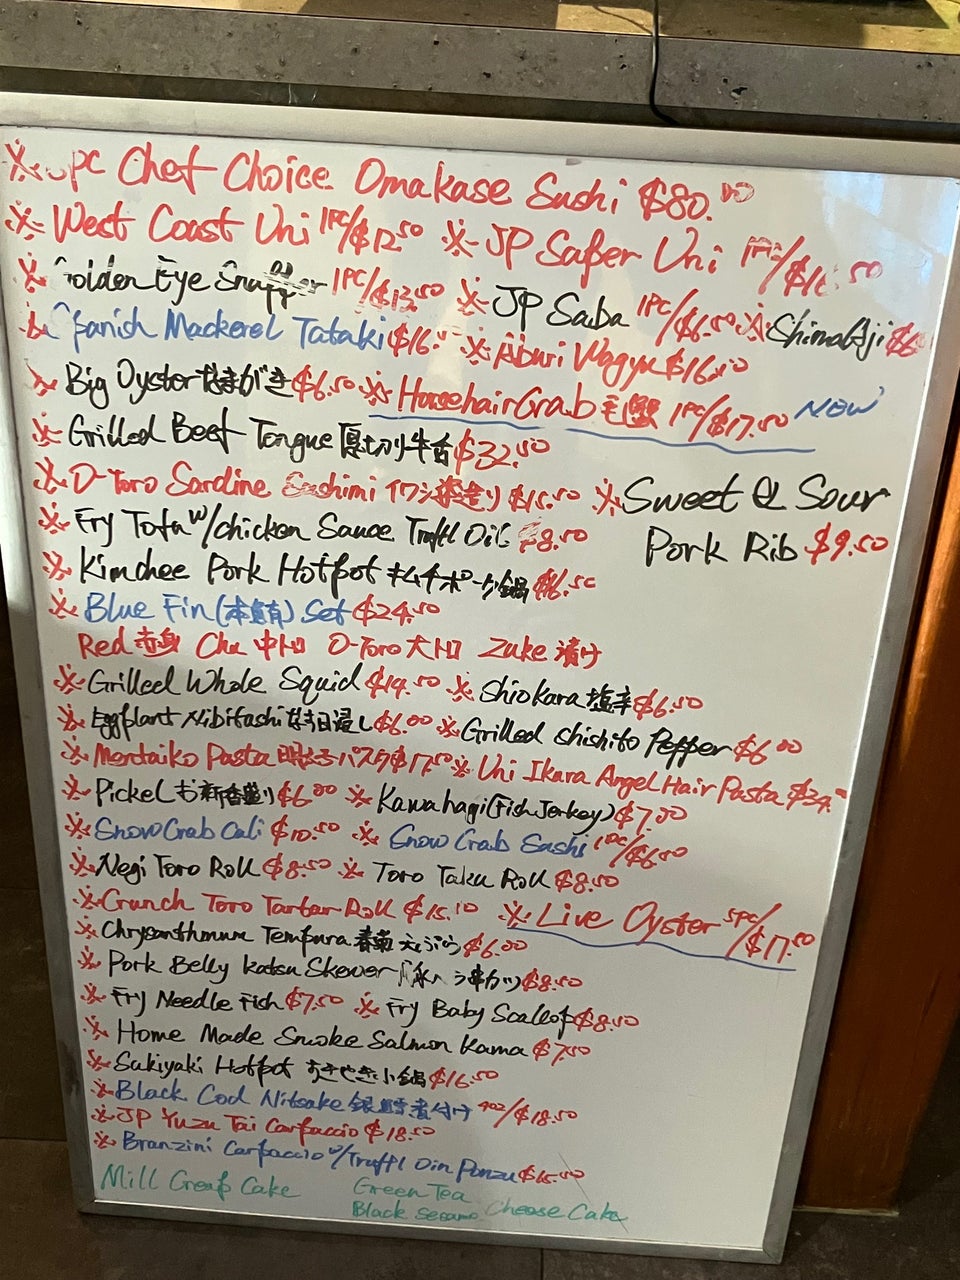 ※ pc Chef Choice Omakase Sushi $80.00
※ West Coast Uni 1PC/$12.50 ※ JP Super Uni 1PC/$1 .50
※ Golden Eye Snapper 1PC/$13.50 ※ JP Saba 1PC/$6.50 ※ Shima Aji $6
※ Spanish Mackerel Tataki $16. ※ Aburi Wagyu $16.00
※ Big Oyster なまがき $6.50 ※ Horsehair Crab 毛蟹 1PC/$17.50 NEW
※ Grilled Beef Tongue 厚切り牛舌 $32.50
※ O-Toro Sardine Sashimi イワシ姿造り $15.50 ※ Sweet & Sour
Pork Rib $9.50
※ Fry Tofu w/chicken Sauce Truffl Oil $8.50
※ Kimchee Pork Hotpot キムチポーク鍋 $16.50
※ Blue Fin (本鮪) Set $24.50
Red 赤身 Chu 中トロ O-Toro 大トロ Zuke 漬け
※ Grilled Whole Squid $14.50 ※ Shiokara 塩辛 $6.50
※ Eggplant Nibitashi 浸し $6.00 ※ Grilled Shishito Pepper $6.00
※ Mentaiko Pasta 明太子パスタ $17.50 ※ Uni Ikura Angel Hair Pasta $34.
※ Pickel お新香盛り $6.00 ※ Kawahagi (Fish Jerkey) $7.00
※ Snow Crab Cali $10.50 ※ Snow Crab Sushi 1PC/$6.50
※ Negi Toro Roll $8.50 ※ Toro Taku Roll $8.50
※ Crunch Toro Tartar Roll $15.10 ※ Live Oyster 5PC/$17.50
※ Chrysanthmum Tempura 春菊天ぷら $6.00
※ Pork Belly Katsu Skewer 豚バラ串カツ $8.50
※ Fry Needle Fish $7.50 ※ Fry Baby Scallop $8.50
※ Home Made Smoke Salmon Kama $7.50
※ Sukiyaki Hotpot すきやき小鍋 $16.50
※ Black Cod Nitsuke 銀鱈煮付け 4oz/$18.50
※ JP Yuzu Tai Carpaccio $18.50
※ Branzini Carpaccio w/Truffl Oin Ponzu $16.50
Mill Creap Cake Green Tea
Black Sesame Cheese Cake